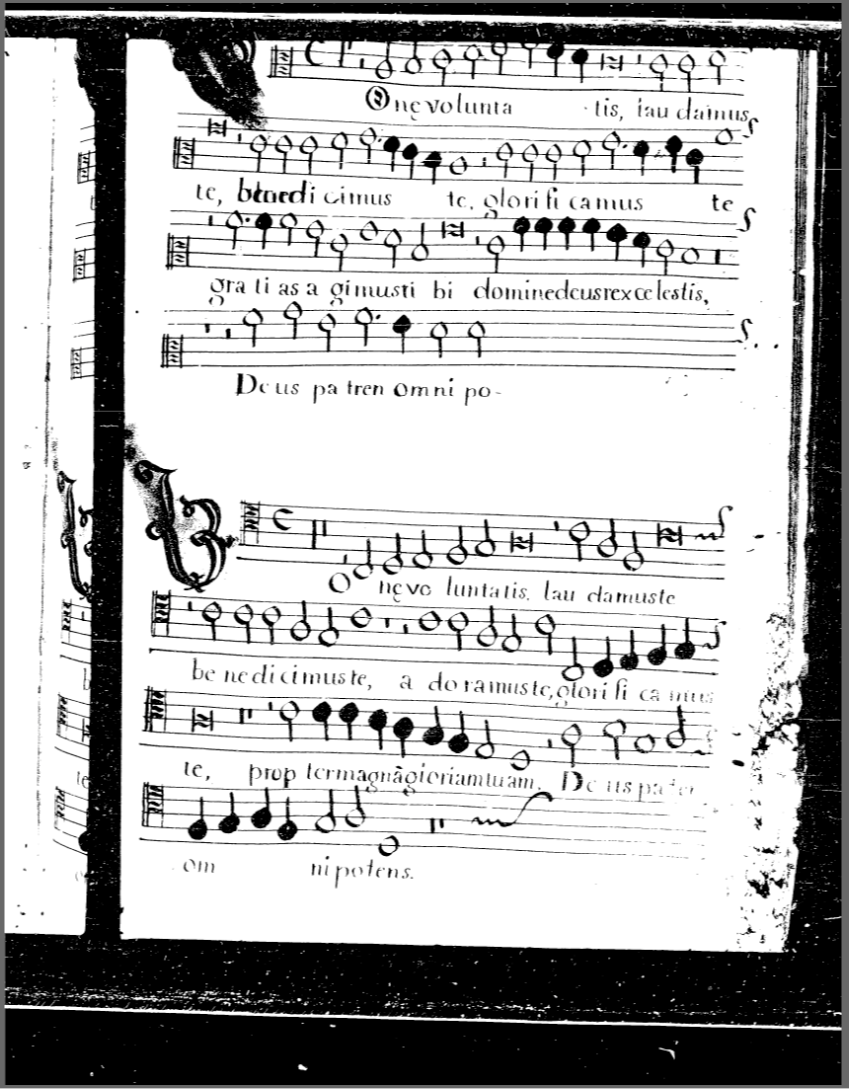 Onę volunta tis, lau damus
te, benedi cimus te, glori fi camus te
gra ti as a gimusti bi dominedeusrex ce lestis,
Deus pa tren omni po-
B
nę vo luntatis. lau damuste
be ne di cimus te, a do ramuste, glori fi ca mus
te, prop termagnāgloriamtuam. De us pa ter
om nipotens.